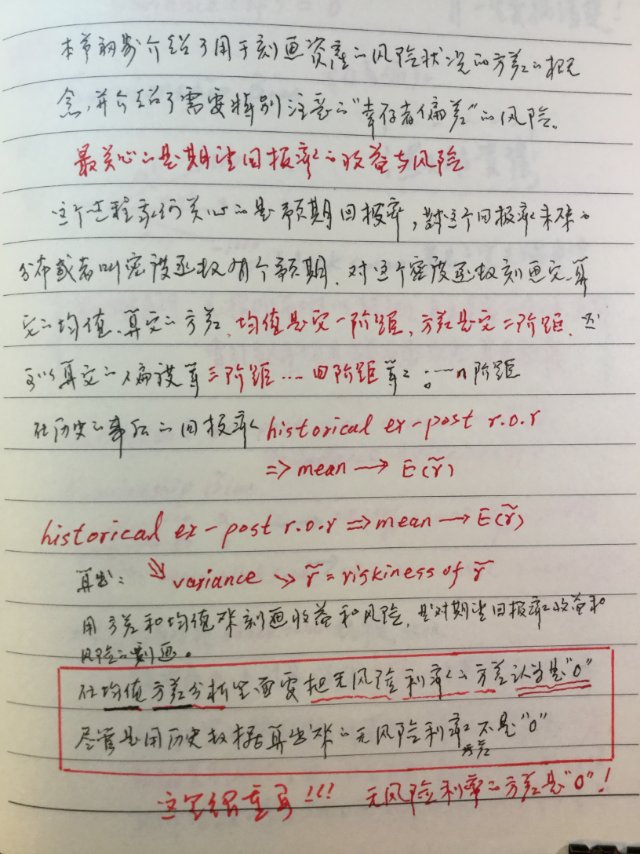 本节初步介绍了用于刻画资产的风险状况的方差的概
念,并介绍了需要特别注意的"幸存者偏差"的风险。
最关心的是期望回报率的收益与风险
这个过程我们关心的是预期回报率,对这个回报率未来的
分布或者叫密度函数有个预期.对这个密度函数刻画完,算
它的均值、算它的方差,均值是它一阶距,方差是它二阶距,还
可以算它的偏度等三阶距....四阶距等:....n阶距
在历史的事后的回报率 historical ex-post r.o.r
=> mean → E(r̃)
historical ex-post r.o.r => mean → E(r̃)
算出: ↘ variance → r̃ = riskiness of r̃
用方差和均值来刻画收益和风险,是对期望回报率收益和
风险的刻画。
在均值方差分析里需要把无风险利率的方差认为是"0"
尽管是用历史数据算出来的无风险利率方差不是"0"
这里很重要!!! 无风险利率的方差是"0"!